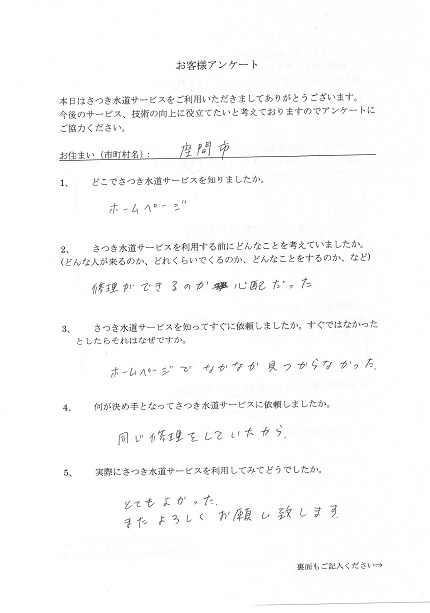 お客様アンケート
本日はさつき水道サービスをご利用いただきましてありがとうございます。
今後のサービス、技術の向上に役立てたいと考えておりますのでアンケートに
ご協力ください。
お住まい（市町村名）： 座間市
1、 どこでさつき水道サービスを知りましたか。
ホームページ
2、 さつき水道サービスを利用する前にどんなことを考えていましたか。
（どんな人が来るのか、どれくらいでくるのか、どんなことをするのか、など）
修理ができるのか心配だった
3、 さつき水道サービスを知ってすぐに依頼しましたか。すぐではなかった
としたらそれはなぜですか。
ホームページでなかなか見つからなかった.
4、 何が決め手となってさつき水道サービスに依頼しましたか。
同じ修理をしていたから.
5、 実際にさつき水道サービスを利用してみてどうでしたか。
とてもよかった.
またよろしくお願い致します.
裏面もご記入ください⇒